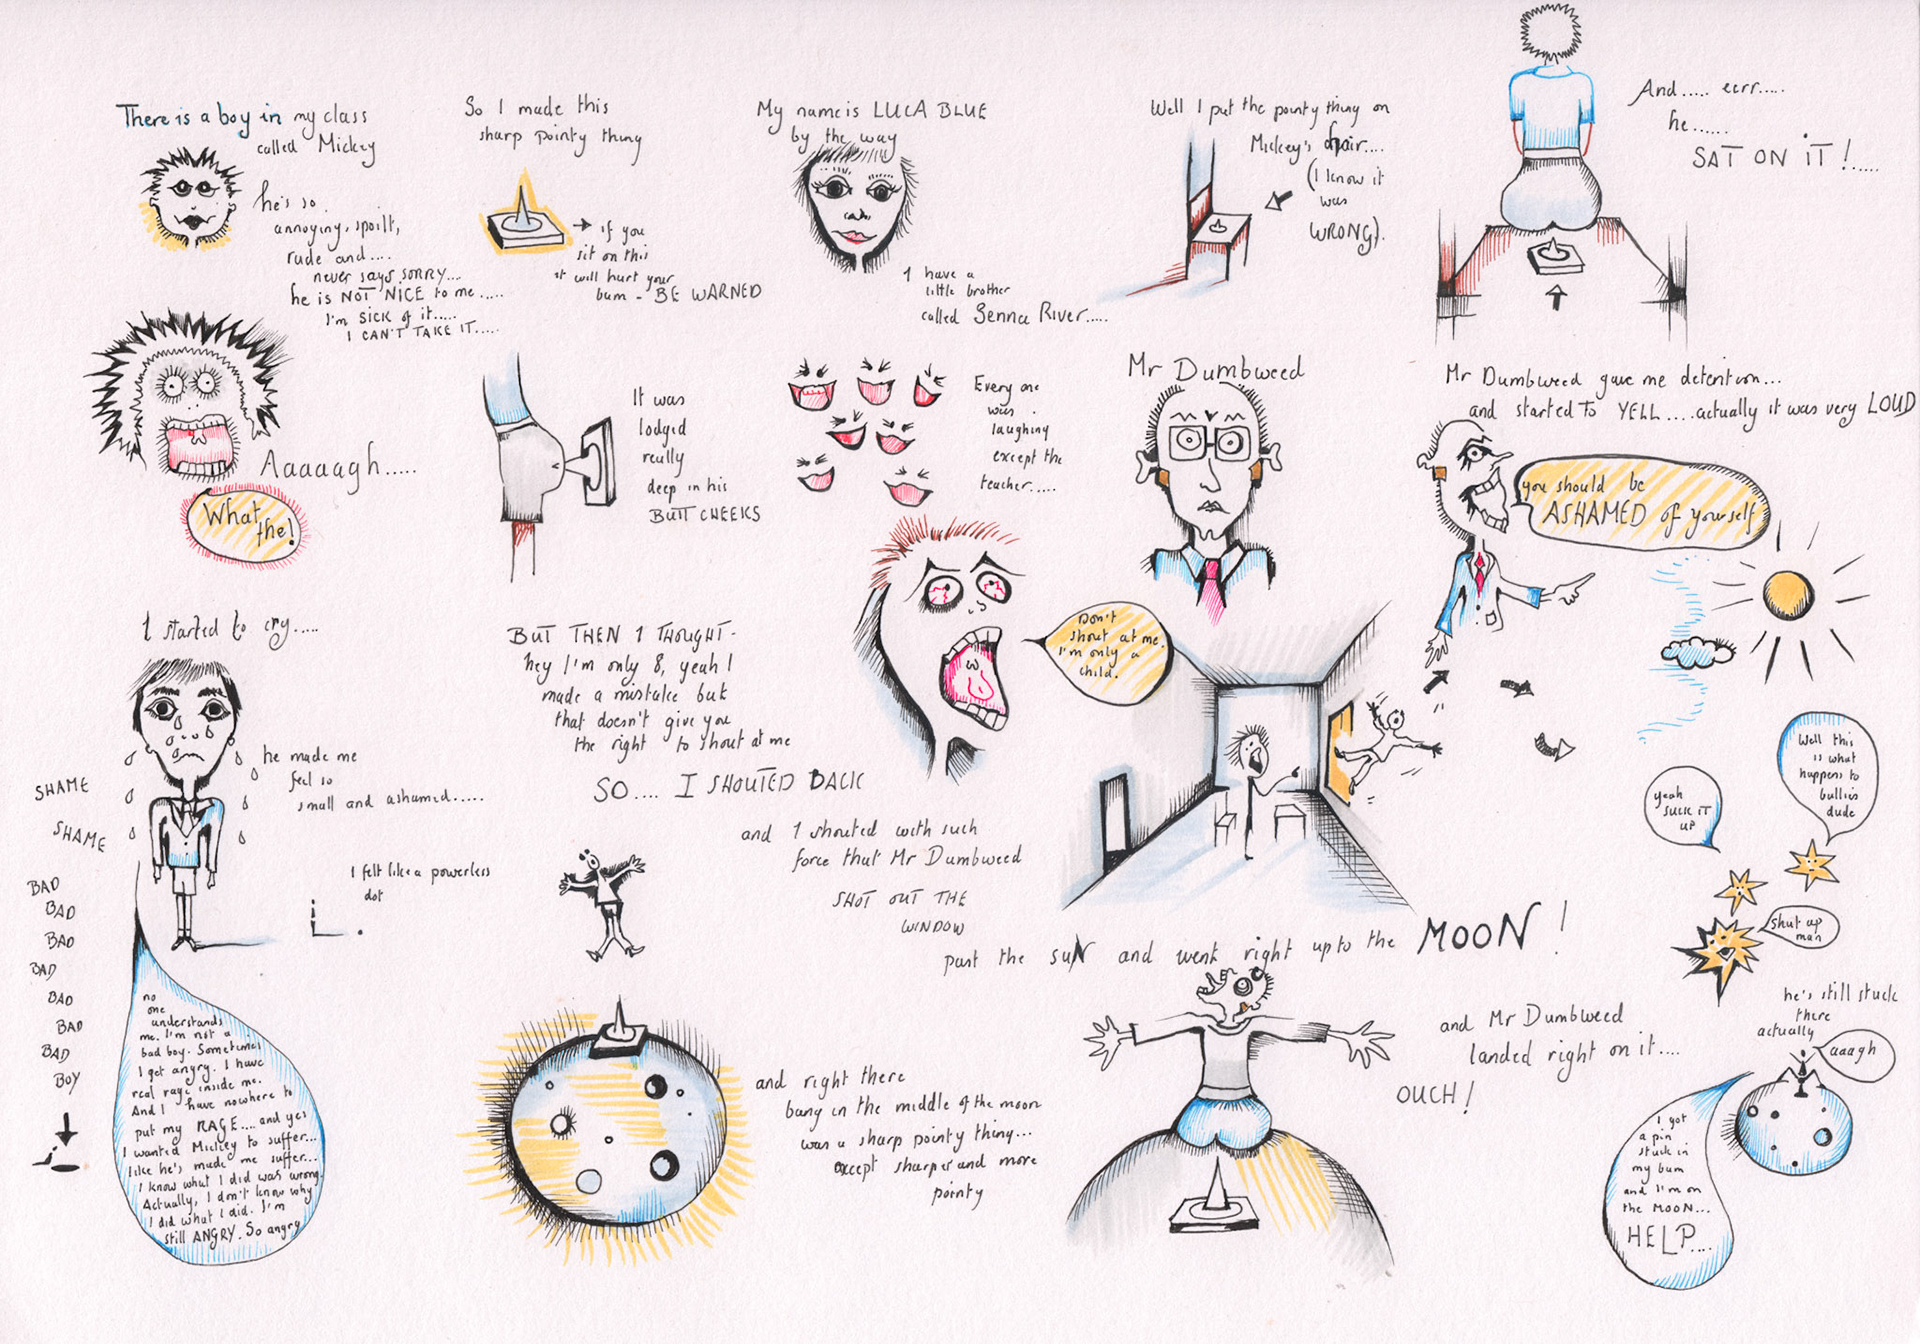 There is a boy in my class
called Mickey
he's so
annoying, spoilt,
rude and....
never says SORRY...
he is NOT NICE to me.....
I'm SICK of it.....
I CAN'T TAKE IT.....
So I made this
sharp pointy thing
if you
sit on this
it will hurt your
bum - BE WARNED
My name is LUCA BLUE
by the way
I have a
little brother
called Senna River.....
Well I put the pointy thing on
Mickey's chair....
(I know it
was
WRONG).
And..... eerr.....
he......
SAT ON IT!.....
Aaaaagh.....
What
the!
It was
lodged
really
deep in his
BUTT CHEEKS
Every one
was
laughing
except the
teacher.....
Mr Dumbweed
Mr Dumbweed gave me detention...
and started to YELL....actually it was very LOUD
you should be
ASHAMED of yourself
I started to cry.....
he made me
feel so
small and ashamed.....
SHAME
SHAME
BAD
BAD
BAD
BAD
BAD
BAD
BAD
BOY
I felt like a powerless
dot
no
one
understands
me. I'm not a
bad boy. Sometimes
I get angry. I have
real rage inside me.
And I have nowhere to
put my RAGE.... and yes
I wanted Mickey to suffer...
like he's made me suffer...
I know what I did was wrong.
Actually, I don't know why
I did what I did. I'm
still ANGRY. So angry
BUT THEN I THOUGHT-
hey I'm only 8, yeah I
made a mistake but
that doesn't give you
the right to shout at me
SO.... I SHOUTED BACK
Don't
shout at me.
I'm only a
child.
and I shouted with such
force that Mr Dumbweed
SHOT OUT THE
WINDOW
past the SUN and went right up to the MOON!
and right there
bang in the middle of the moon
was a sharp pointy thing...
except sharper and more
pointy
and Mr Dumbweed
landed right on it....
OUCH!
Well this
is what
happens to
bullies
dude
yeah
SUCK IT
UP
shut up
man
he's still stuck
there
actually
aaagh
I got
a pin
stuck in
my bum
and I'm on
the MOON...
HELP....